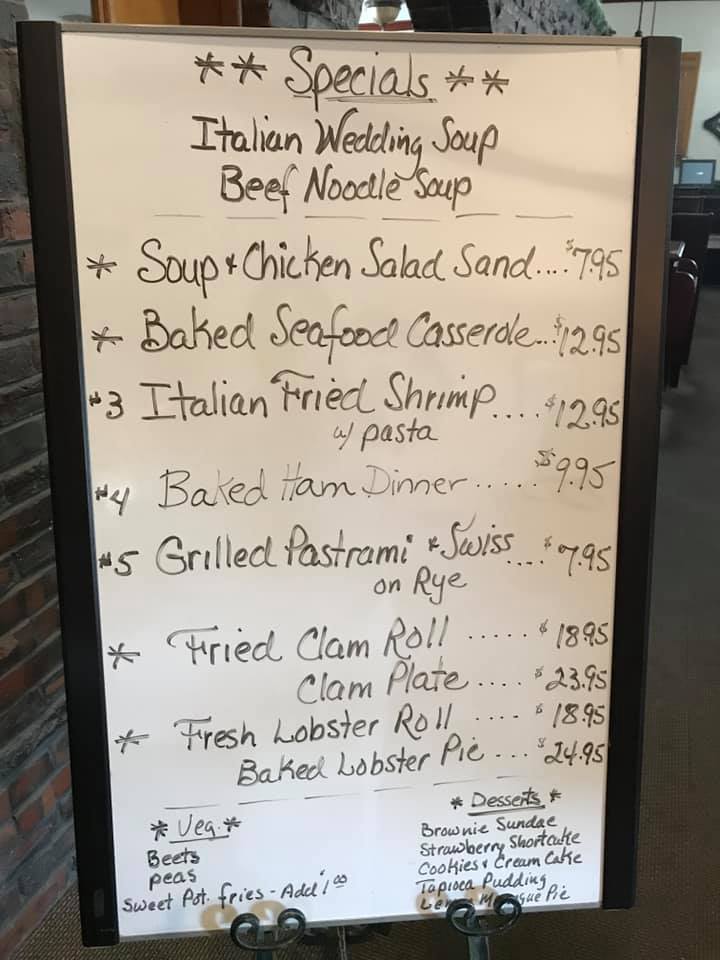 ** Specials **
Italian Wedding Soup
Beef Noodle Soup
* Soup & Chicken Salad Sand.... $7.95
* Baked Seafood Casserole... $12.95
#3 Italian Fried Shrimp.... $12.95
w/ pasta
#4 Baked Ham Dinner ..... $9.95
#5 Grilled Pastrami & Swiss .... $7.95
on Rye
* Fried Clam Roll ..... $18.95
Clam Plate .... $23.95
* Fresh Lobster Roll .... $18.95
Baked Lobster Pie ... $24.95
* Veg. *
Beets
peas
Sweet Pot. fries - Add 1.00
* Desserts *
Brownie Sundae
Strawberry Shortcake
Cookies & Cream Cake
Tapioca Pudding
Pie